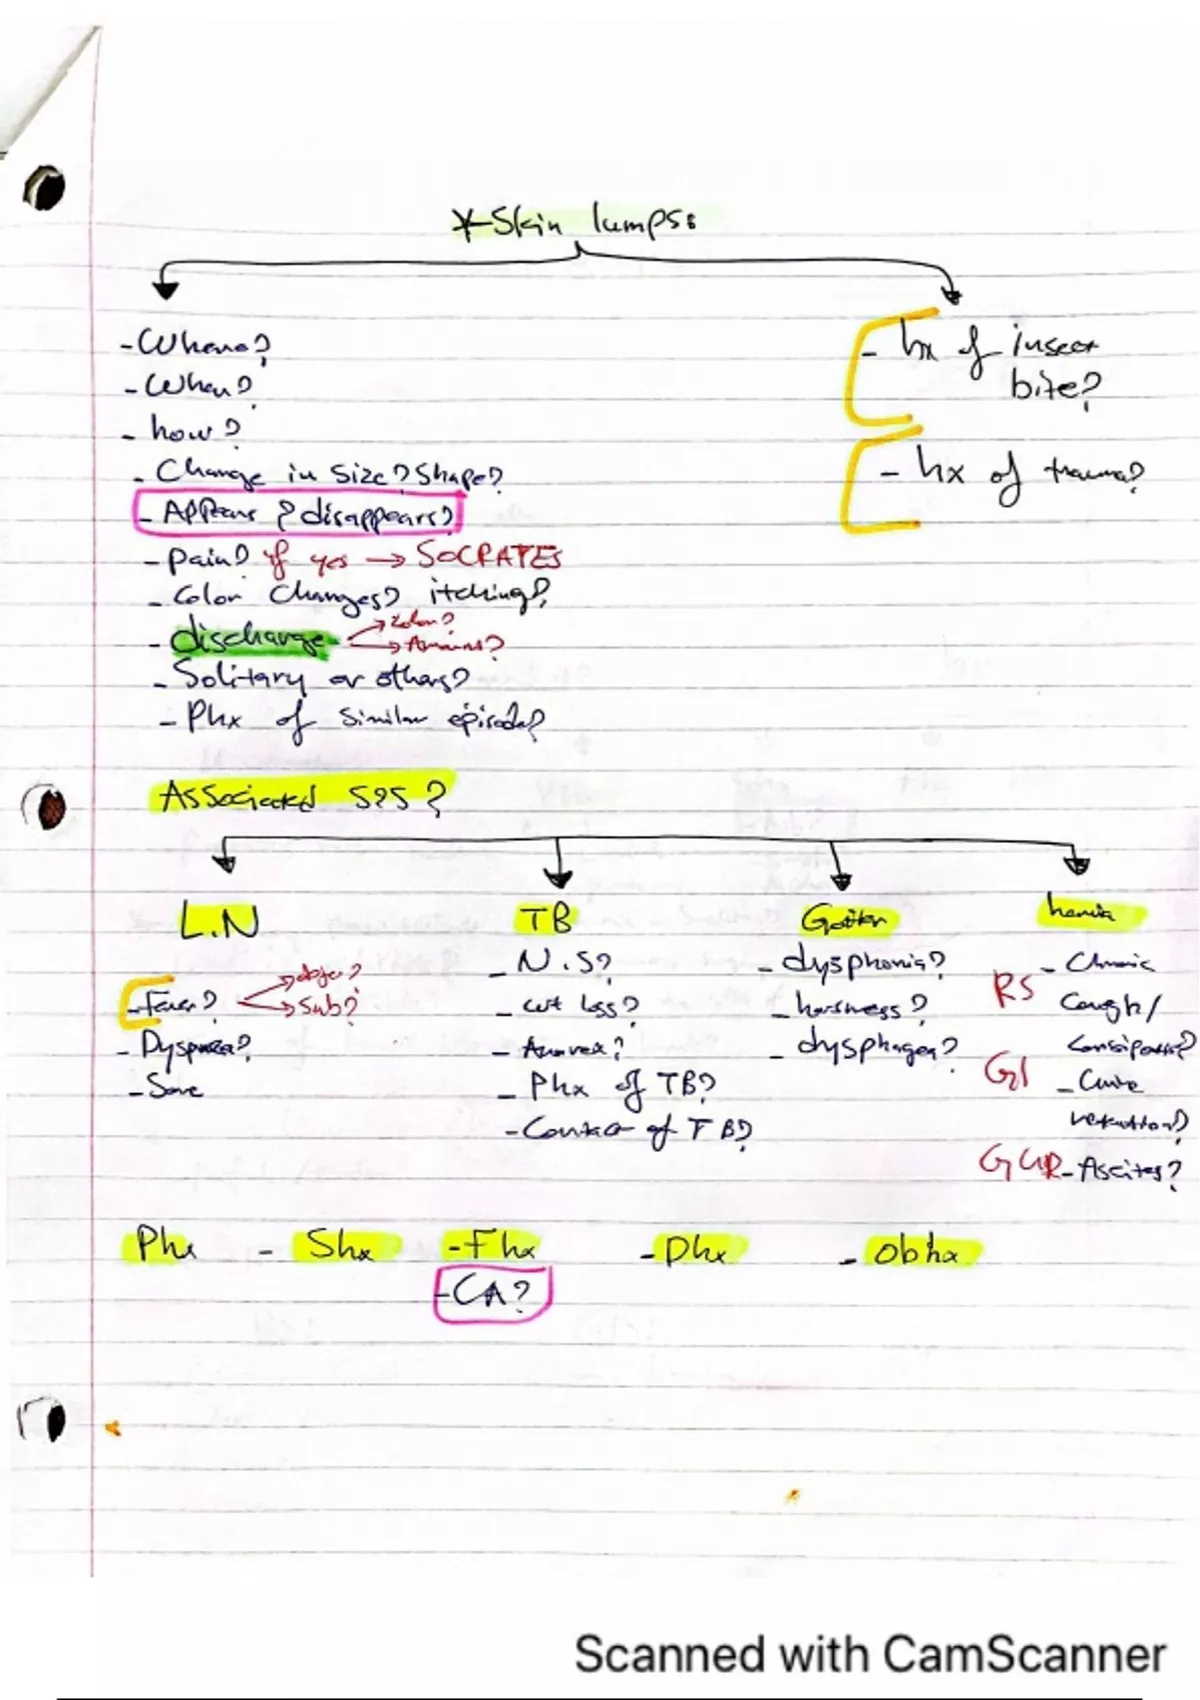 *Skin lumps:
- Where?
- When?
- how?
- Change in Size? Shape?
- Appears & disappears?
- Pain? if yes → SOCRATES
- Color Changes? itching?
- discharge → Color?
→ Amount?
- Solitary or others?
- Phx of Similar episode?
- hx of insect
bite?
- hx of trauma?
Associated S&S?
L.N
- Fever? → obje?
→ Sub?
- Dyspnea?
- Sore
TB
- N.S?
- wt loss?
- Anorex?
- Phx of TB?
- Contact of TB?
Goiter
- dysphonia?
- horsness?
- dysphagea?
hernia
RS - Chronic
Cough/
Constipation?
GI - Urine
retention?
GUR - Ascites?
Phx - Shx - Fhx - Dhx - Obhx
- CA?
Scanned with CamScanner